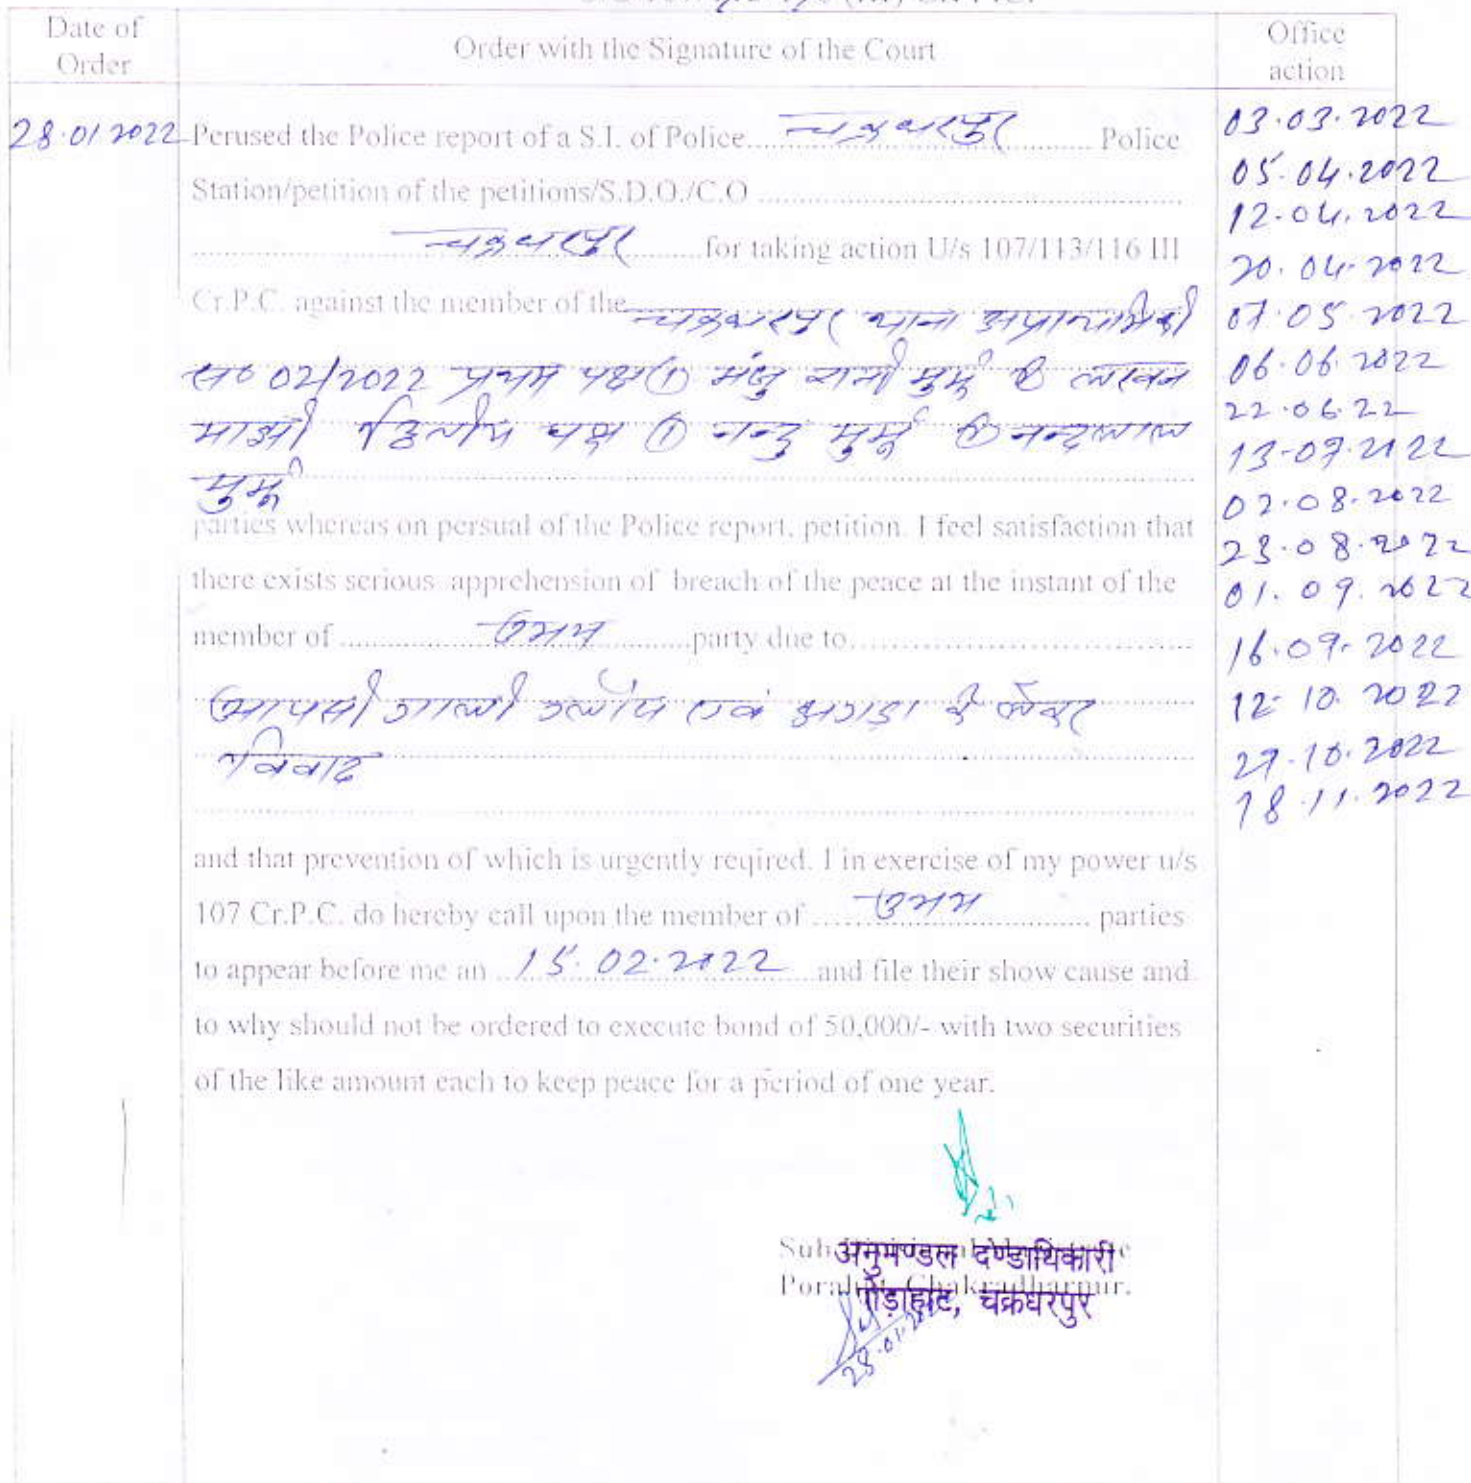 Date of
Order
Order with the Signature of the Court
Office
action
28.01.2022 Perused the Police report of a S.I. of Police चक्रधरपुर Police
Station/petition of the petitions/S.D.O./C.O
चक्रधरपुर for taking action U/s 107/113/116 III
Cr.P.C. against the member of the चक्रधरपुर थाना अप्राथमिकी
सं० 02/2022 प्रथम पक्ष ① मंजु रानी मुर्मू ② लखन
माझी द्वितीय पक्ष ① नन्दु मुर्मू ② नन्दलाल
मुर्मू
parties whereas on persual of the Police report, petition. I feel satisfaction that
there exists serious apprehension of breach of the peace at the instant of the
member of उभय party due to
आपसी गाली गलौज एवं झगड़ा को लेकर
विवाद
and that prevention of which is urgently reqired. I in exercise of my power u/s
107 Cr.P.C. do hereby call upon the member of उभय parties
to appear before me an 15.02.2022 and file their show cause and
to why should not be ordered to execute bond of 50,000/- with two securities
of the like amount each to keep peace for a period of one year.
03.03.2022
05.04.2022
12.04.2022
20.04.2022
07.05.2022
06.06.2022
22.06.22
13.07.2022
02.08.2022
23.08.2022
01.09.2022
16.09.2022
12.10.2022
29.10.2022
18.11.2022
अनुमण्डल दण्डाधिकारी
पोड़ाहाट, चक्रधरपुर
Porahat, Chakradharpur.
28.01.2022